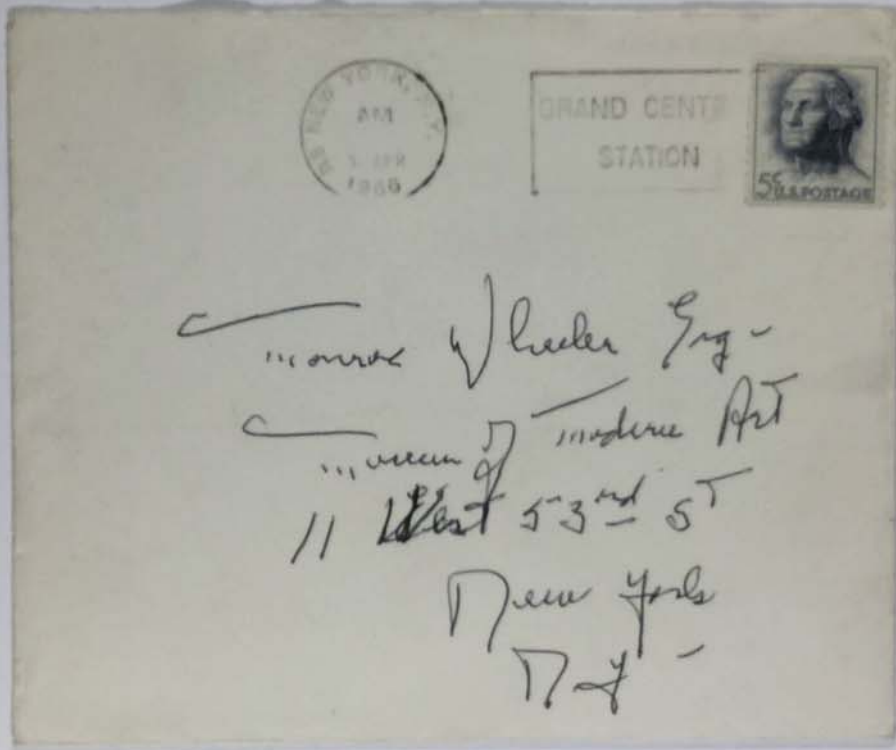 NEW YORK, N.Y.
AM
APR
1966
GRAND CENT
STATION
5¢ U.S. POSTAGE
Monroe Wheeler Esq -
Museum of Modern Art
11 West 53rd ST
New York
N Y -